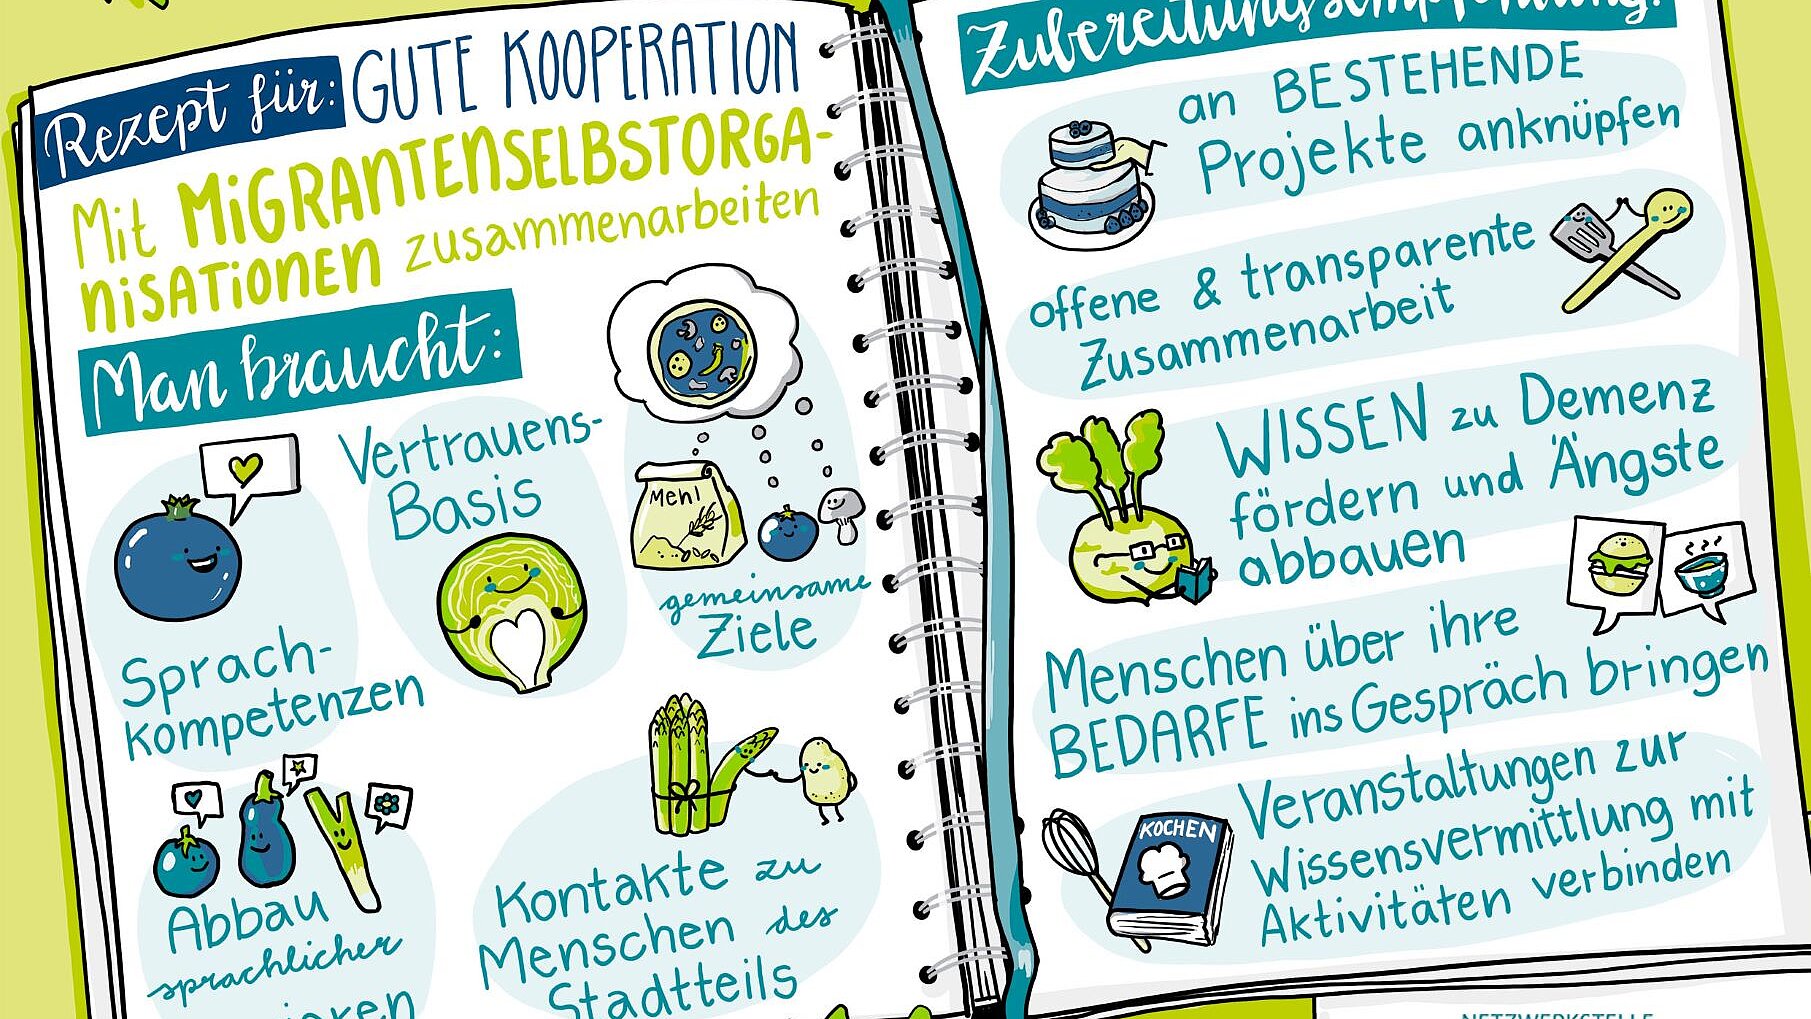 Rezept für: GUTE KOOPERATION
Mit MiGRANTENSELBSTORGA-
NiSATiONEN zusammenarbeiten
Man braucht:
Sprach-
kompetenzen
Vertrauens-
Basis
Mehl
gemeinsame
Ziele
Abbau
sprachlicher
Kontakte zu
Menschen des
Stadtteils
Zubereitungsempfehlung:
an BESTEHENDE
Projekte anknüpfen
offene & transparente
Zusammenarbeit
WISSEN zu Demenz
fördern und Ängste
abbauen
Menschen über ihre
BEDARFE ins Gespräch bringen
KOCHEN
Veranstaltungen zur
Wissensvermittlung mit
Aktivitäten verbinden
NETZWERKSTELLE